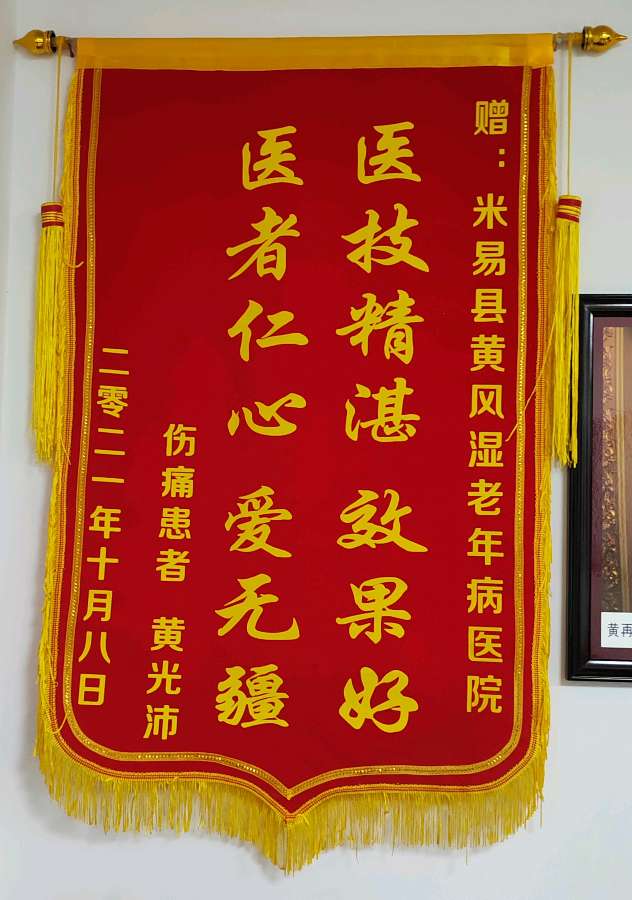 赠：米易县黄风湿老年病医院
医技精湛 效果好
医者仁心 爱无疆
伤痛患者 黄光沛
二零二一年十月八日
黄再